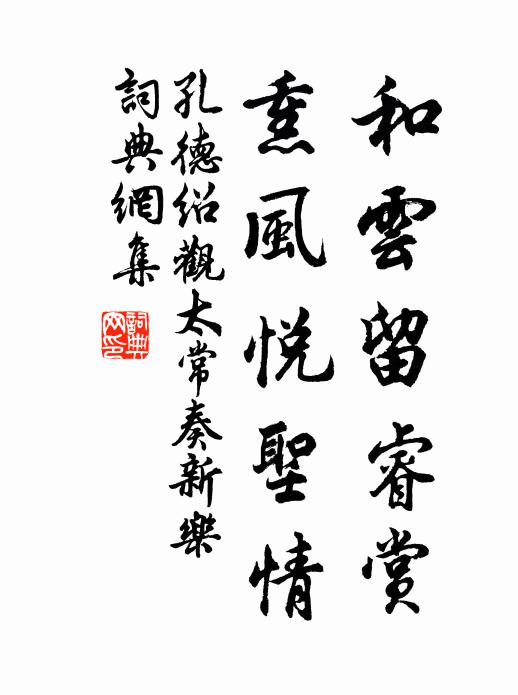 和雲留睿賞
熏風悅聖情
孔德紹觀太常奏新樂
詞典網集
詞典網印